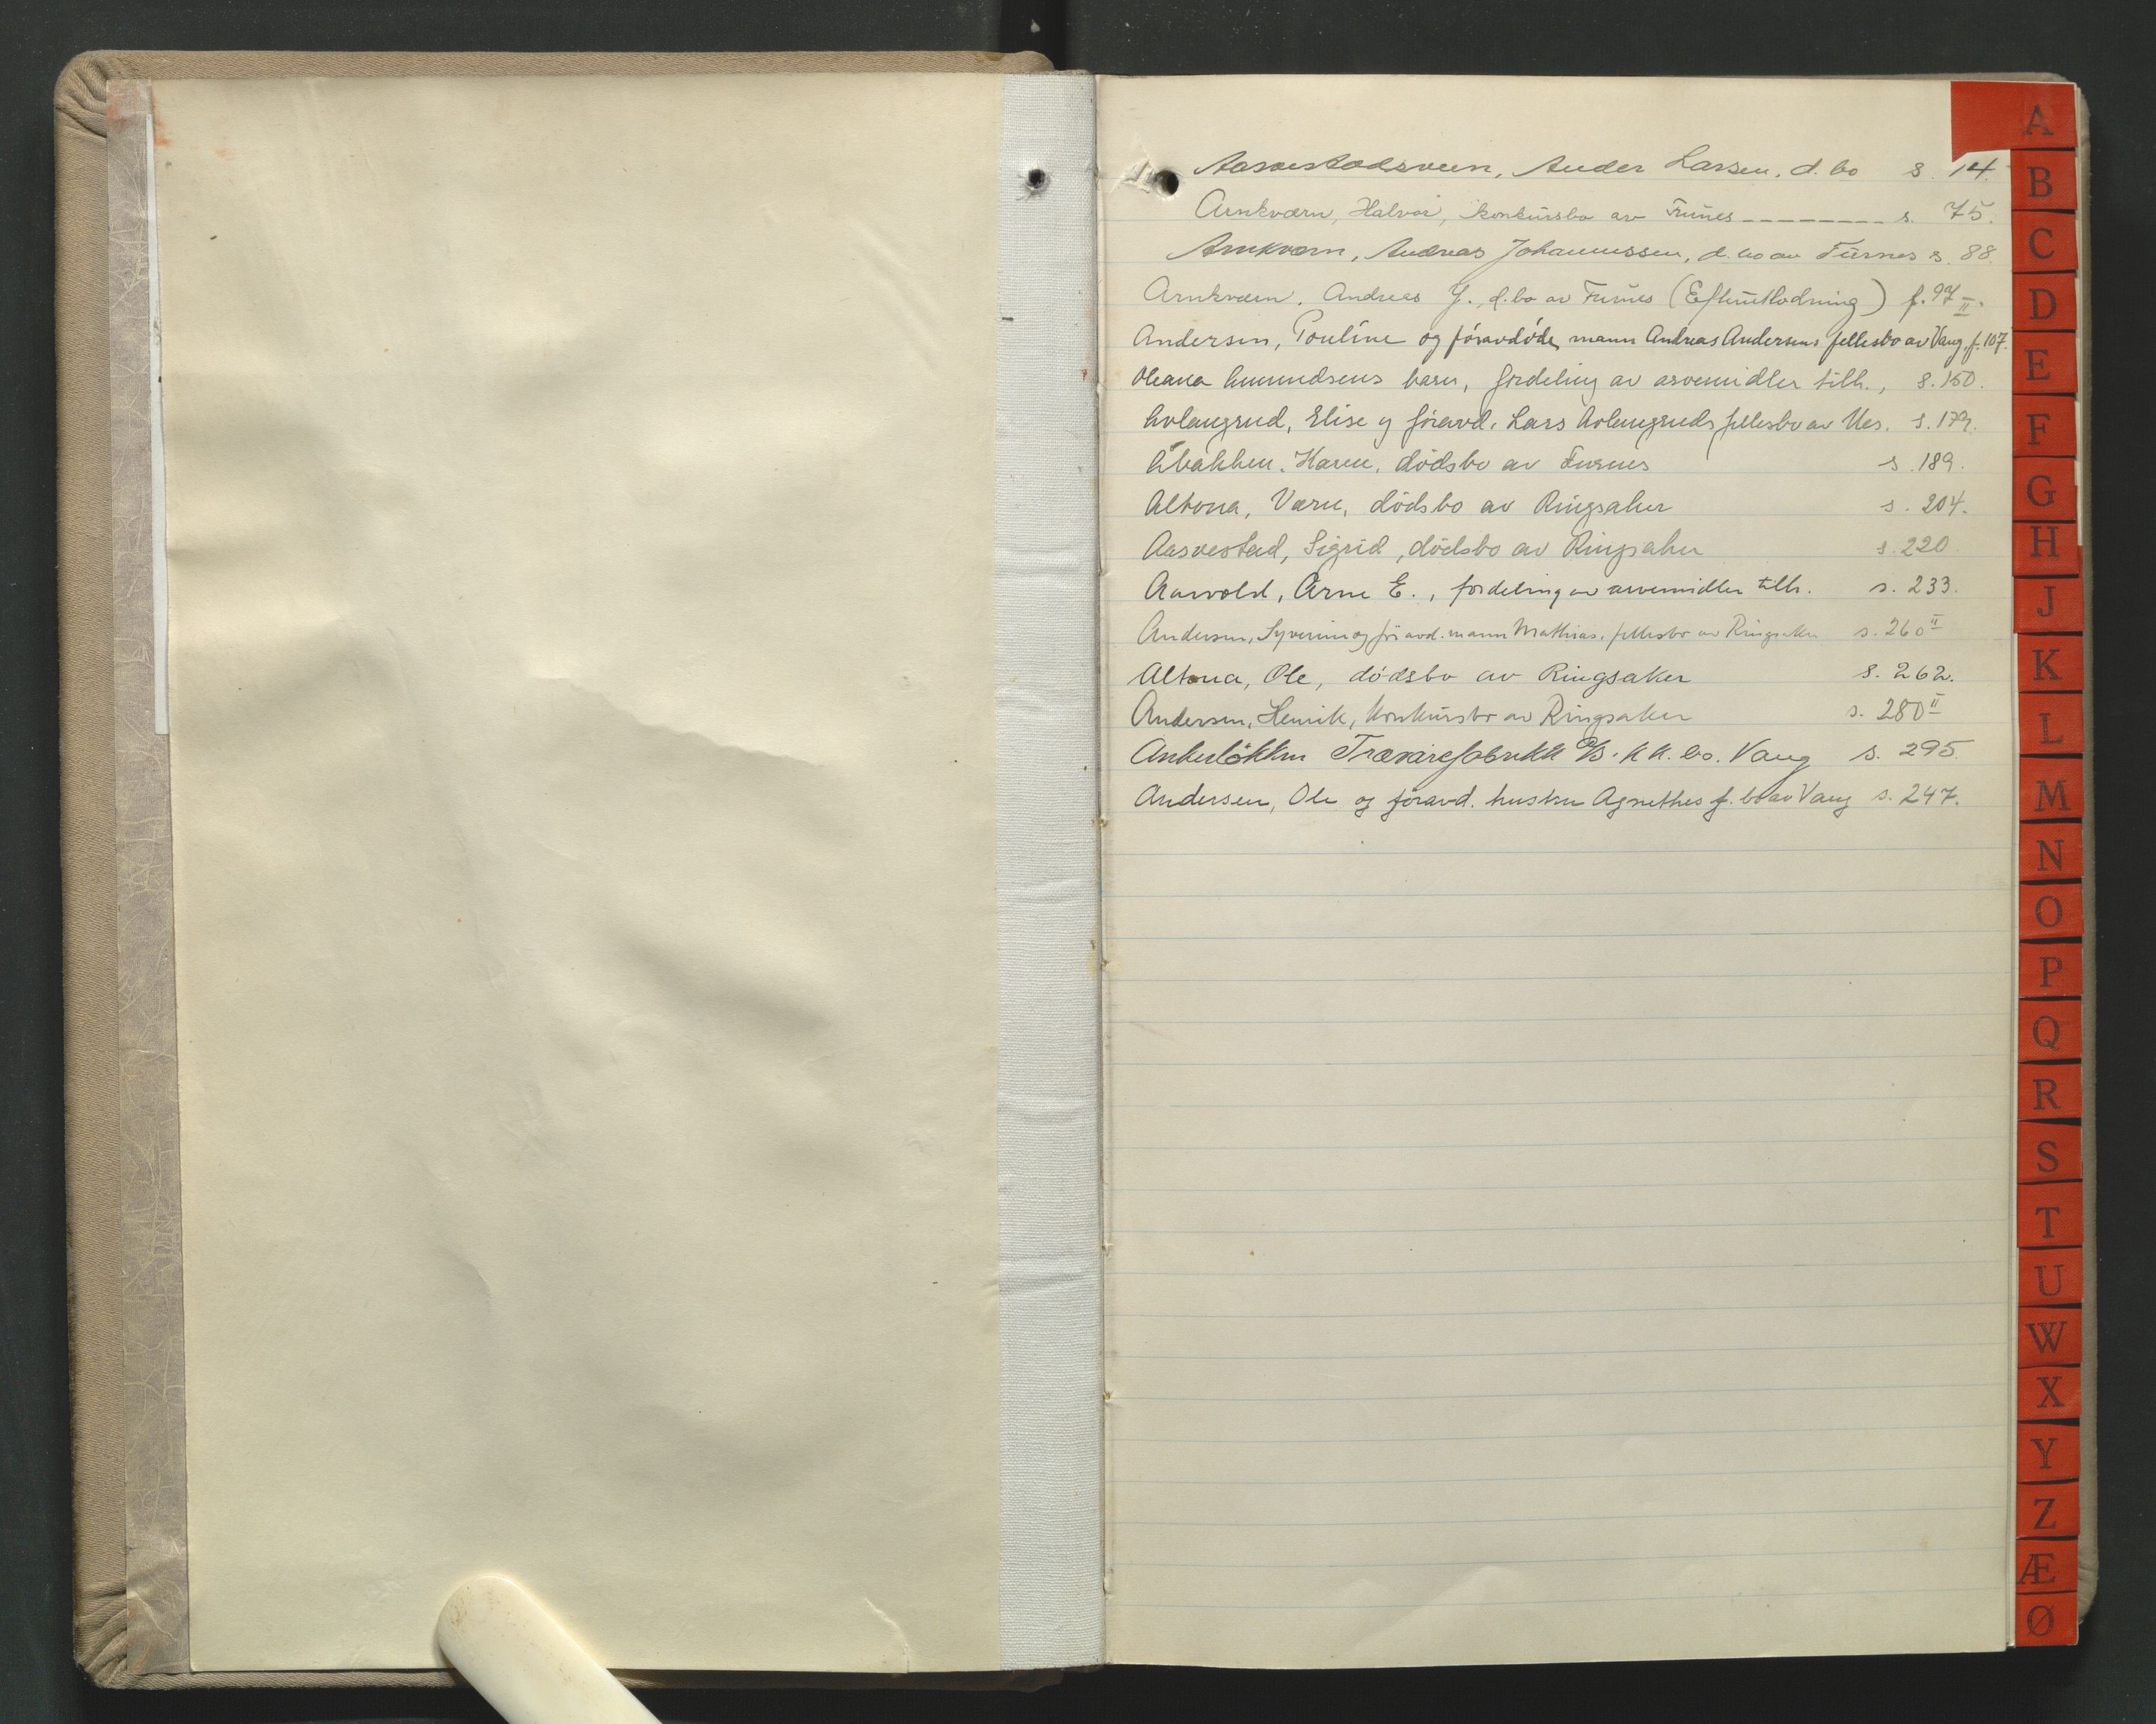 Aasvestadsveen, Ander Larsen, d. bo s. 14.
Arnkværn, Halvor, konkursbo av Furnes -------- s. 75.
Arnkværn, Andreas Johannessen, d. bo av Furnes s. 88.
Arnkværn, Andreas J., d. bo av Furnes (Efterutlodning) f. 97 II.
Andersen, Pouline og föravdöde mann Andreas Andersens fellesbo av Vang, f. 107.
Oleana Amundsens barn, fordeling av arvemidler tilh., s. 150.
Elise og föravd. Lars fellesbo av Nes. s. 179.
Åbakken, Karen, dödsbo av Furnes s. 189.
Altona, Karen, dödsbo av Ringsaker s. 204.
Aasvestad, Sigrid, dödsbo av Ringsaker s. 220.
Aarvold, Arne E., fordeling av arvemidler tilh. s. 233.
Andersen, Syverine og föravd. mann Mathias, fellesbo av Ringsaker s. 260 II
Altona, Ole, dödsbo av Ringsaker s. 262.
Andersen, Henrik, konkursbo av Ringsaker s. 280 II
Ankerlökken Trævarefabrikk A/S. k.k. bo. Vang s. 295.
Andersen, Ole og föravd. hustru Agnethes f. bo av Vang s. 247.
A
B
C
D
E
F
G
H
J
K
L
M
N
O
P
Q
R
S
T
U
W
X
Y
Z
Æ
Ø